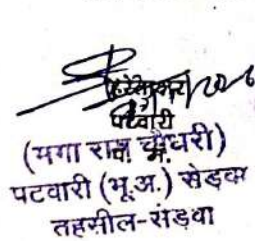 पटवारी
(मगा राम चौधरी)
पटवारी (भू.अ.) सेड़वा
तहसील-सेड़वा